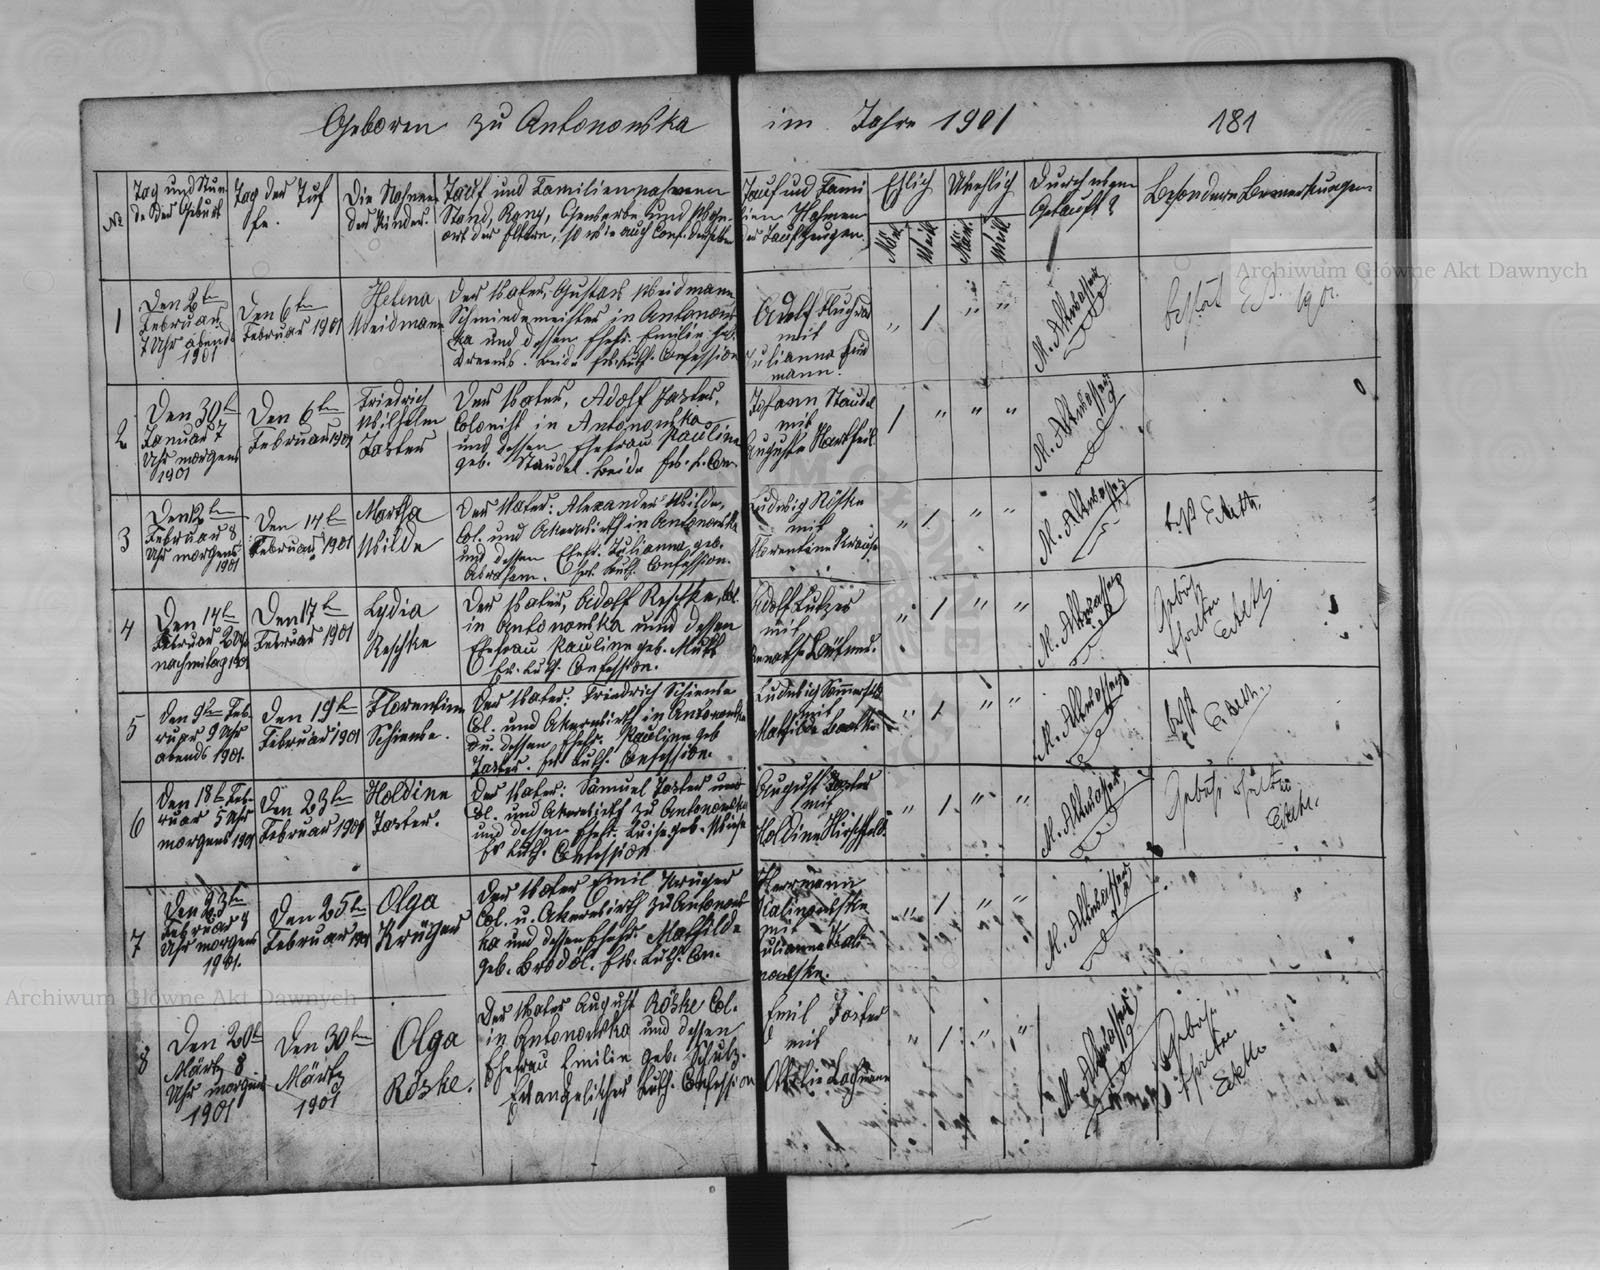 Geboren zu Antonowka im Jahre 1901 181
No
Tag und Stun
de der Geburt
Tag der Tau
fe.
Die Nahmen
der Kinder.
Tauf und Familiennahmen
Stand, Rang, Gewerbe und Wohn-
ort der Eltern, so wie auch Conf. derselben
Tauf und Fami
lien Nahmen
der Taufzeugen
Ehlich
Unehlich
Män.
Weib.
Män.
Weib.
Durch wem
Getauft?
Besondere Bemerkungen
1
Den 2ten
Februar
7 Uhr abends
1901
Den 6ten
Februar 1901
Helena
Weidmann
Der Vater, Gustav Weidmann
Schmiedemeister in Antonow
ka und dessen Ehefr. Emilie geb.
Drews. beide Ev. Luth. Confession
Adolf
mit
Julianna Weid
mann.
" 1 " "
M. Altwasser
1901.
2
Den 30ten
Januar 7
Uhr morgens
1901
Den 6ten
Februar 1901
Friedrich
Wilhelm
Jaster
Der Vater, Adolf Jaster,
Colonist in Antonowka
und dessen Ehefrau Pauline
geb. Staudel. beide Ev. L. Con.
Johann Staudel
mit
Auguste Hartheil
1 " " "
M. Altwasser
3
Den 12ten
Februar 8
Uhr morgens
1901
Den 14ten
Februar 1901
Martha
Wilde
Der Vater: Alexander Wilde,
Col. und Akerwirth in Antonowka
und dessen Ehefr. Julianna geb.
Abraham. Ev. Luth. Confession.
Ludwig Röske
mit
Florentine Krause
" 1 " "
M. Altwasser
4
Den 14ten
Februar 2 Uhr
nachmitag 1901
Den 17ten
Februar 1901
Lydia
Reschke
Der Vater, Adolf Reschke, Col.
in Antonowka und dessen
Ehefrau Pauline geb.
Ev. Luth. Confession.
Adolf Lutzer
mit
" 1 " "
M. Altwasser
5
Den 9ten Feb-
ruar 9 Uhr
abends 1901.
Den 19ten
Februar 1901
Florentine
Schienke.
Der Vater: Friedrich Schienke
Col. und Akerwirth in Antonowka
u. dessen Ehefr. Pauline geb
Jaster. Ev Luth. Confession.
Ludwig Sommerfeld
mit
Mathilde
" 1 " "
M. Altwasser
6
Den 18ten Feb-
ruar 5 Uhr
morgens 1901
Den 23ten
Februar 1901
Holdine
Jaster.
Der Vater: Samuel Jaster
Col. und Akerwirth zu Antonowka
und dessen Ehefr. Luise geb.
Ev Luth. Confession
August Jaster
mit
Holdine Hirschfeld.
" 1 " "
M. Altwasser
7
Den 23ten
Februar
Uhr morgens
1901.
Den 25ten
Februar 1901
Olga
Krüger
Der Vater Emil Krüger
Col. u. Akerwirth zu Antonow
ka und dessen Ehefr. Mathilde
geb. Brodöl. Ev. Luth. Con.
Herrmann
Kalinowske
mit
Julianna Kali-
nowske.
" 1 " "
M. Altwasser
8
Den 20ten
Märtz 8
Uhr morgens
1901
Den 30ten
Märtz
1901
Olga
Röske.
Der Vater August Röske Col.
in Antonowka und dessen
Ehefrau Emilie geb. Schulz.
Evangelischer Luth. Confession
Emil Jaster
mit
Ottilie Lachmann
" 1 " "
M. Altwasser
Archiwum Główne Akt Dawnych
Archiwum Główne Akt Dawnych